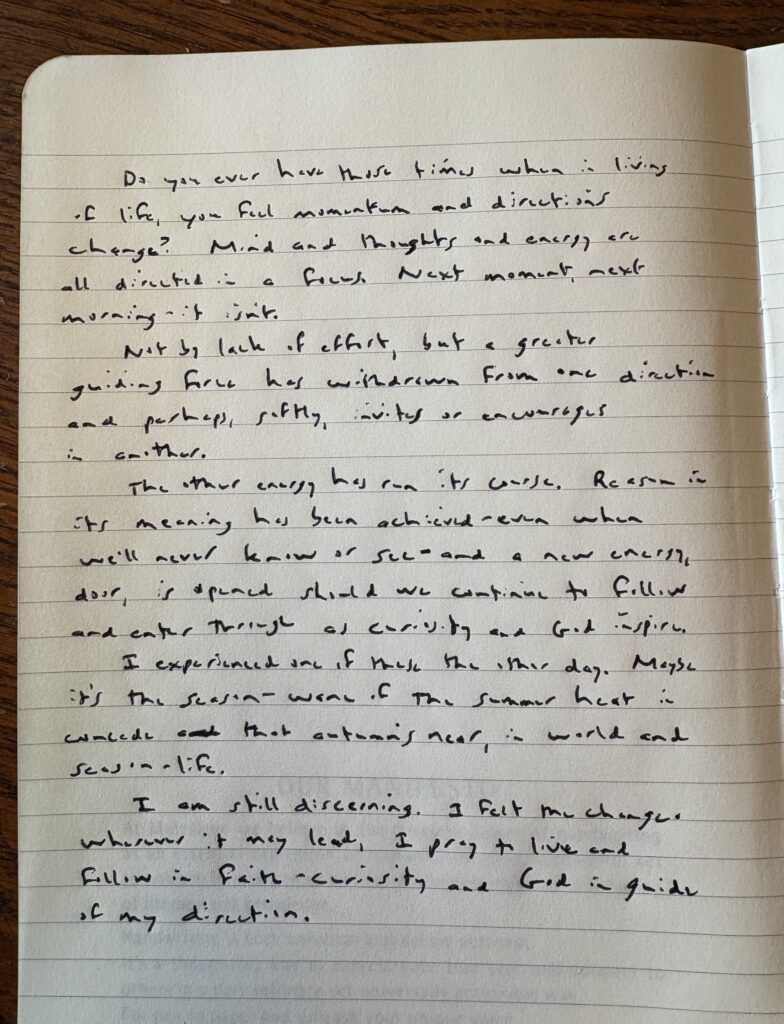 Do you ever have those times when in living
of life, you feel momentum and directions
change? Mind and thoughts and energy are
all directed in a focus. Next moment, next
morning - it isn't.
Not by lack of effort, but a greater
guiding force has withdrawn from one direction
and perhaps, softly, invites or encourages
in another.
The other energy has run its course. Reason in
its meaning has been achieved - even when
we'll never know or see - and a new energy,
door, is opened should we continue to follow
and enter through as curiosity and God inspire.
I experienced one of these the other day. Maybe
it's the season - wane of the summer heat in
concede that autumn's near, in world and
season - life.
I am still discerning. I felt the change.
wherever it may lead, I pray to live and
follow in faith - curiosity and God in guide
of my direction.
OUR MANIFESTO